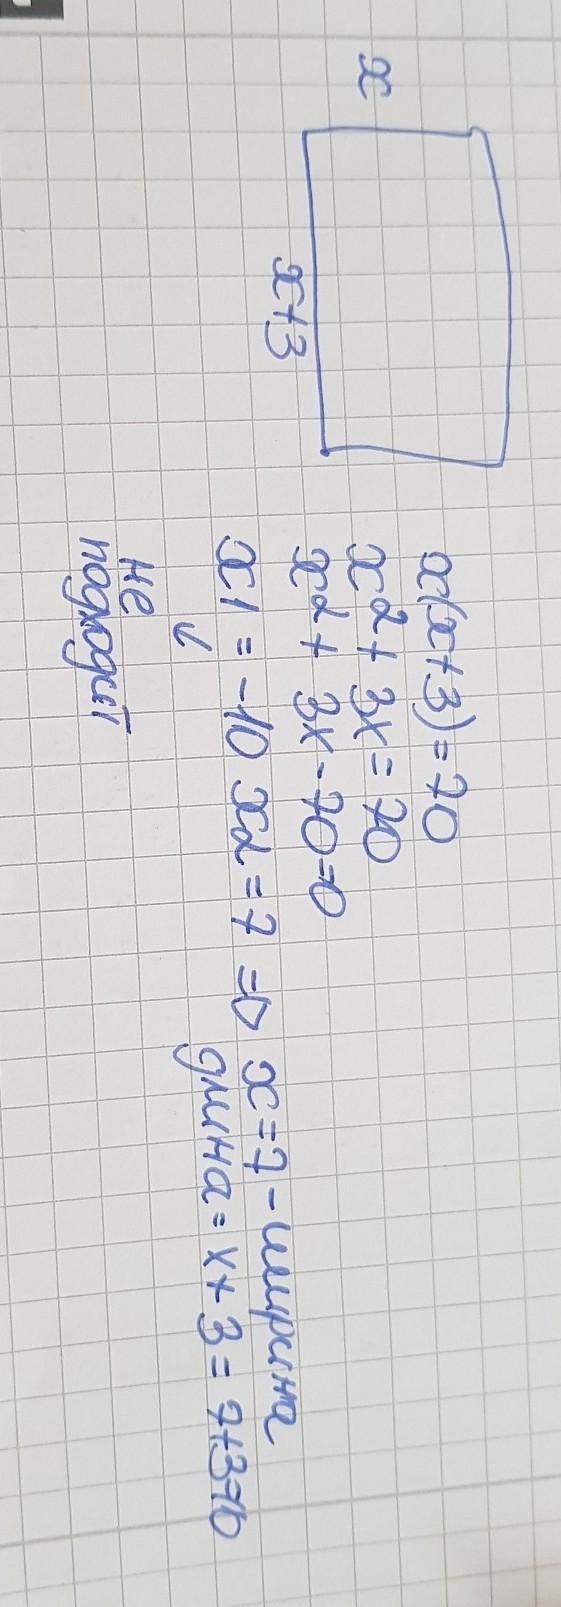 x
x+3
x(x+3)=70
x²+3x=70
x²+3x-70=0
x1=-10 x2=7 => x=7-ширина
не
подходит
длина=x+3=7+3=10